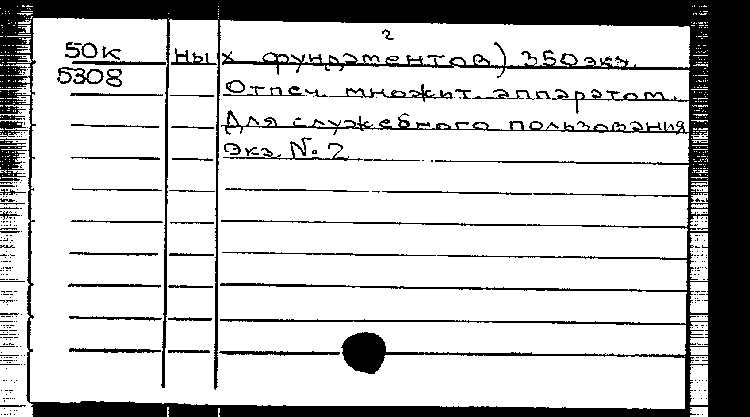 2
50к ных фундаментов) 350 экз.
5308 Отпеч. множит. аппаратом.
Для служебного пользования
Экз. № 2